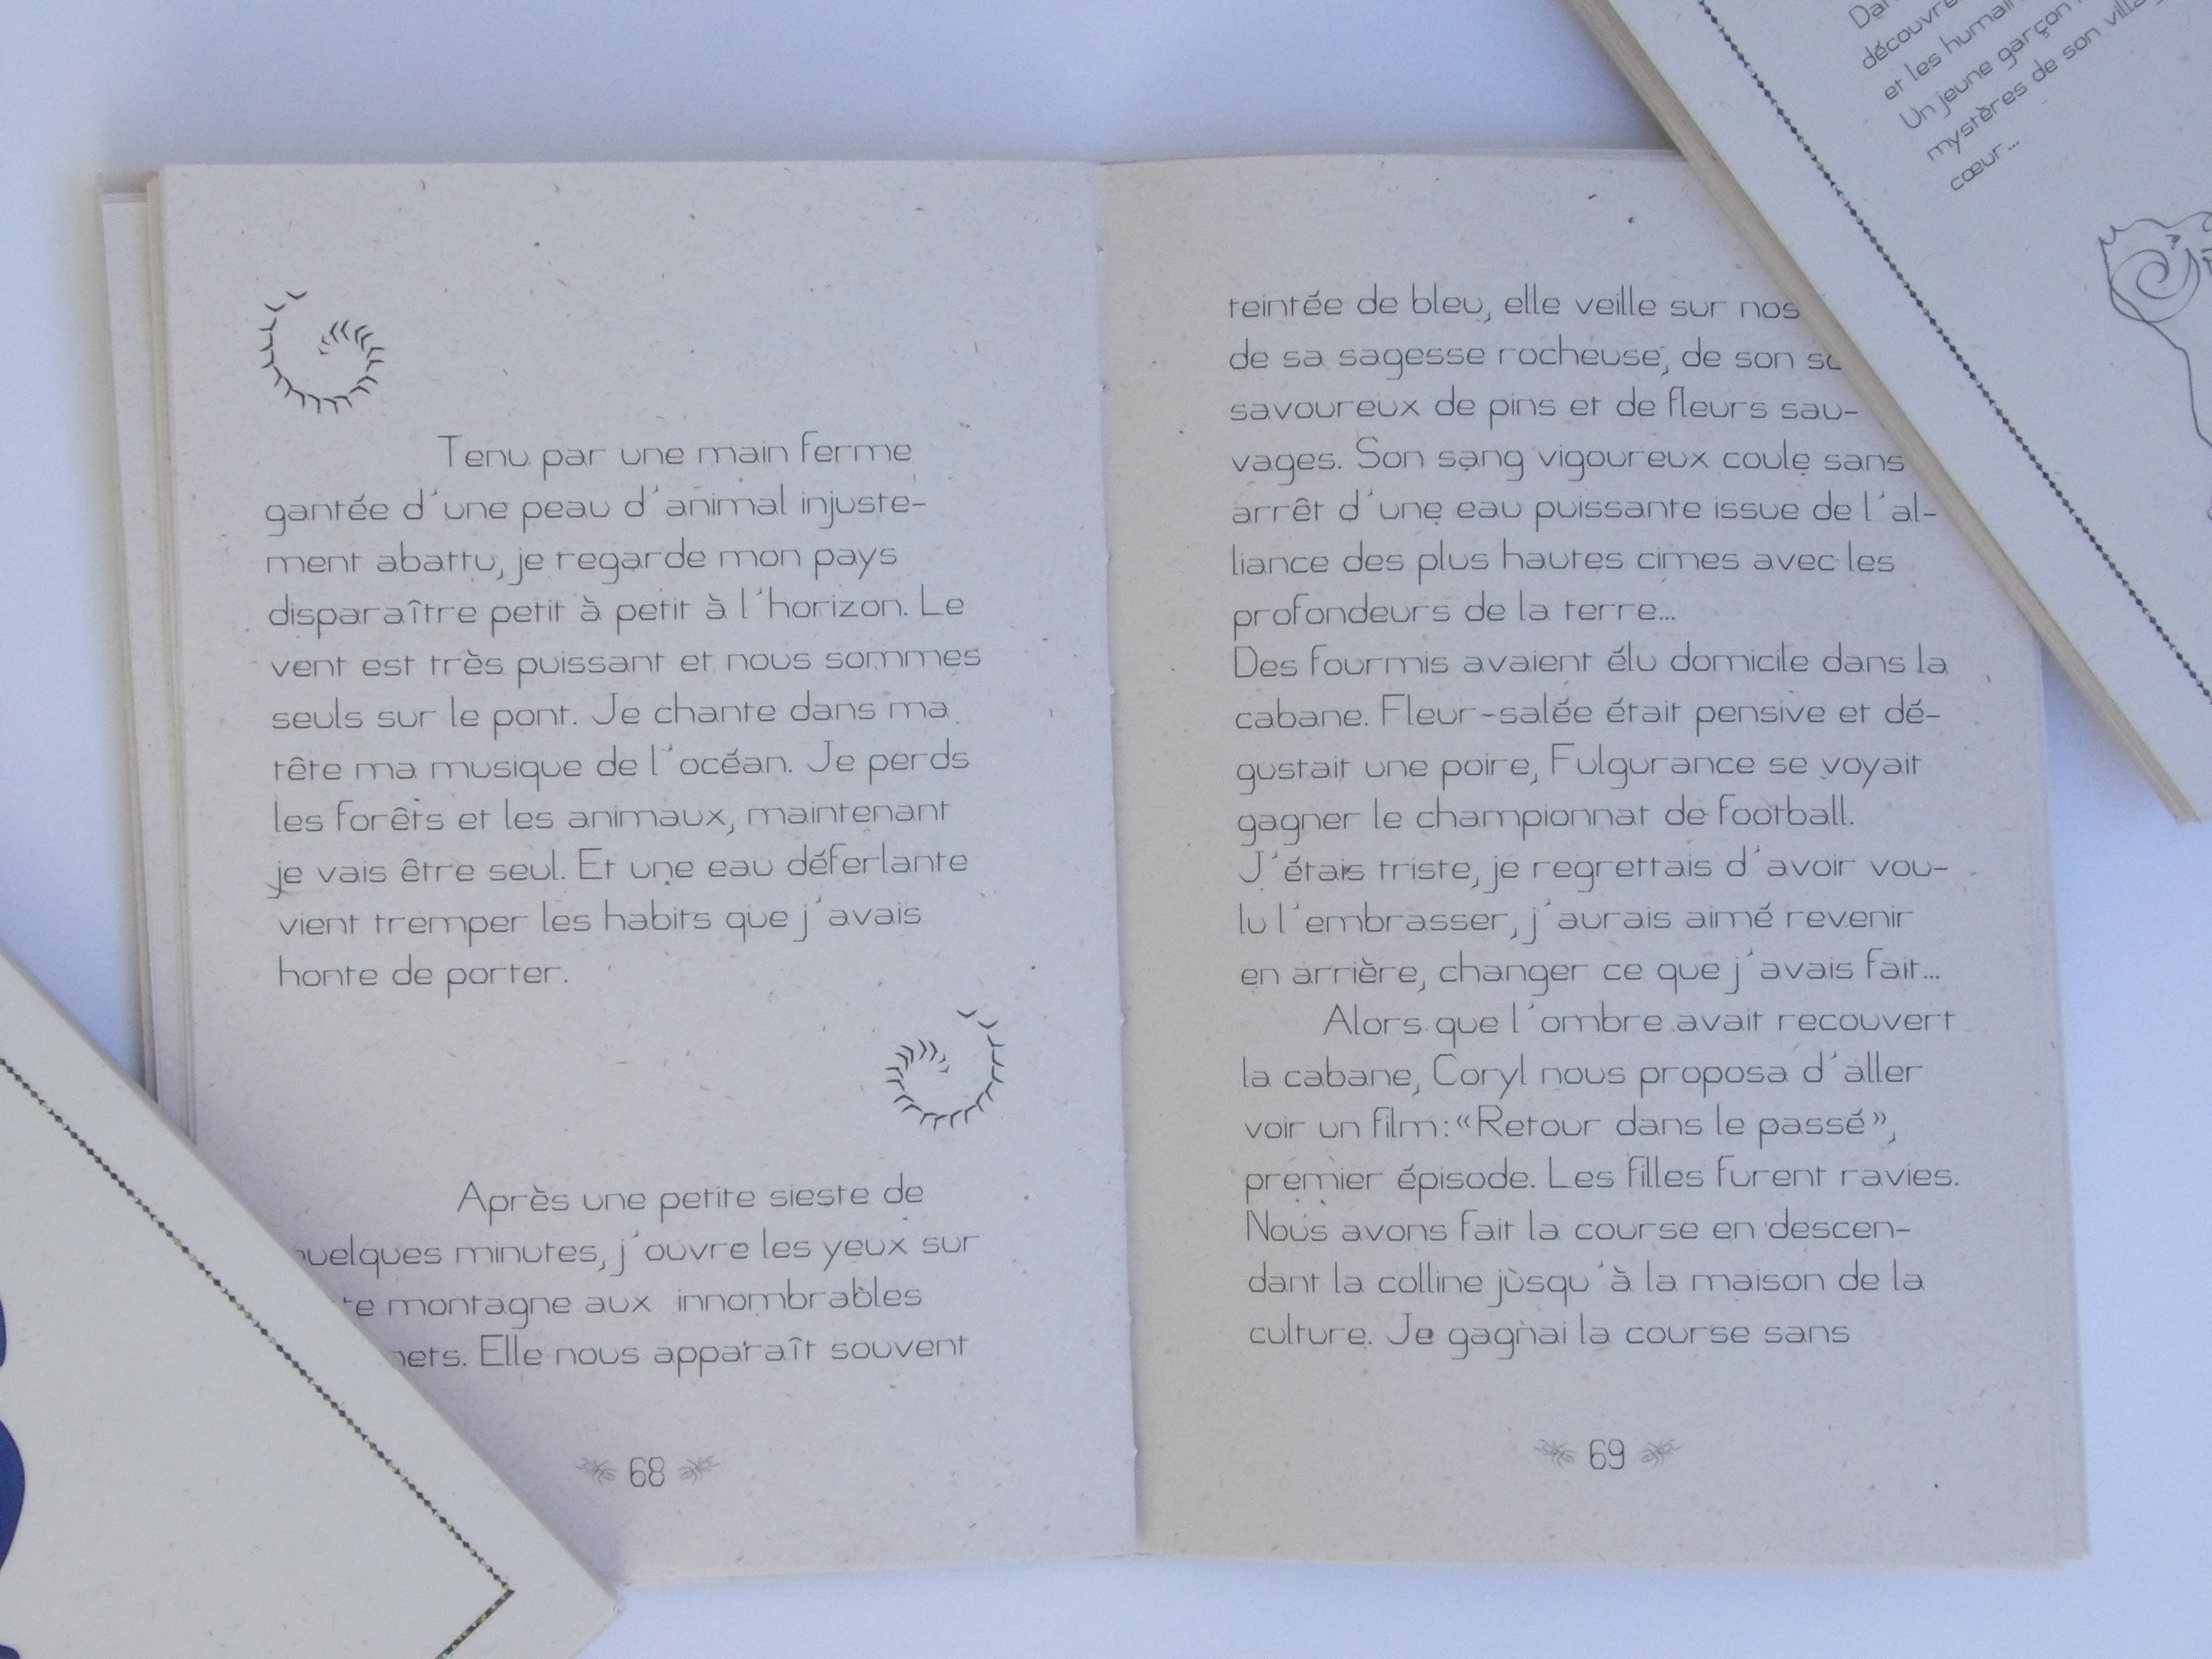 Tenu par une main ferme
gantée d'une peau d'animal injuste-
ment abattu, je regarde mon pays
disparaître petit à petit à l'horizon. Le
vent est très puissant et nous sommes
seuls sur le pont. Je chante dans ma
tête ma musique de l'océan. Je perds
les forêts et les animaux, maintenant
je vais être seul. Et une eau déferlante
vient tremper les habits que j'avais
honte de porter.
Après une petite sieste de
minutes, j'ouvre les yeux sur
montagne aux innombrables
Elle nous apparaît souvent
68
teintée de bleu, elle veille sur nos
de sa sagesse rocheuse, de son
savoureux de pins et de fleurs sau-
vages. Son sang vigoureux coule sans
arrêt d'une eau puissante issue de l'al-
liance des plus hautes cimes avec les
profondeurs de la terre...
Des fourmis avaient élu domicile dans la
cabane. Fleur-salée était pensive et dé-
gustait une poire, Fulgurance se voyait
gagner le championnat de football.
J'étais triste, je regrettais d'avoir vou-
lu l'embrasser, j'aurais aimé revenir
en arrière, changer ce que j'avais fait...
Alors que l'ombre avait recouvert
la cabane, Coryl nous proposa d'aller
voir un film: «Retour dans le passé»,
premier épisode. Les filles furent ravies.
Nous avons fait la course en descen-
dant la colline jusqu'à la maison de la
culture. Je gagnai la course sans
69
et les
Un jeune garçon
mystères de son
cœur...